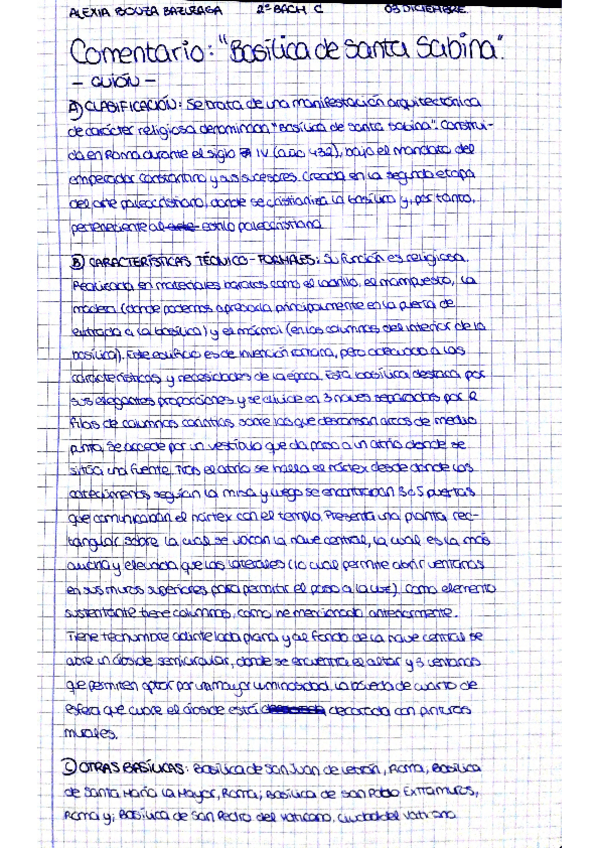 ALEXIA BOUZA BAZURAGA 2º BACH C 03 DICIEMBRE
Comentario: "Basílica de Santa Sabina".
- GUIÓN -
A) CLASIFICACIÓN: Se trata de una manifestación arquitectónica
de carácter religiosa denominada "Basílica de Santa Sabina". Construi-
da en Roma durante el siglo IV (año 432), bajo el mandato del
emperador Constantino y sus sucesores. Creada en la segunda etapa
del arte paleocristiano, donde se cristianiza la basílica y, por tanto,
perteneciente al estilo paleocristiano.
B) CARACTERÍSTICAS TÉCNICO-FORMALES: Su función es religiosa.
Realizada en materiales baratos como el ladrillo, el mampuesto, la
madera (donde podemos apreciarla principalmente en la puerta de
entrada a la basílica) y el mármol (en las columnas del interior de la
basílica). Este edificio es de invención romana, pero adecuado a las
características y necesidades de la época. Esta basílica destaca por
sus elegantes proporciones y se divide en 3 naves separadas por 2
filas de columnas corintias sobre las que descansan arcos de medio
punto. Se accede por un vestíbulo que da paso a un atrio donde se
sitúa una fuente. Tras el atrio se halla el nártex desde donde los
catecúmenos seguían la misa y luego se encontraban 3 o 5 puertas
que comunicaban el nártex con el templo. Presenta una planta rec-
tangular sobre la cual se vocan la nave central, la cual es la más
ancha y elevada que las laterales (lo cual permite abrir ventanas
en sus muros superiores para permitir el paso a la luz). Como elemento
sustentante tiene columnas, como he mencionado anteriormente.
Tiene techumbre adintelada plana y al fondo de la nave central se
abre un ábside semicircular, donde se encuentra el altar y 3 ventanas
que permiten optar por una mayor luminosidad. La bóveda de cuarto de
esfera que cubre el ábside está decorada con pinturas
murales.
C) OTRAS BASÍLICAS: Basílica de San Juan de Letrán, Roma, Basílica
de Santa María la Mayor, Roma, Basílica de San Pablo Extramuros,
Roma y, Basílica de San Pedro del Vaticano, Ciudad del Vaticano.